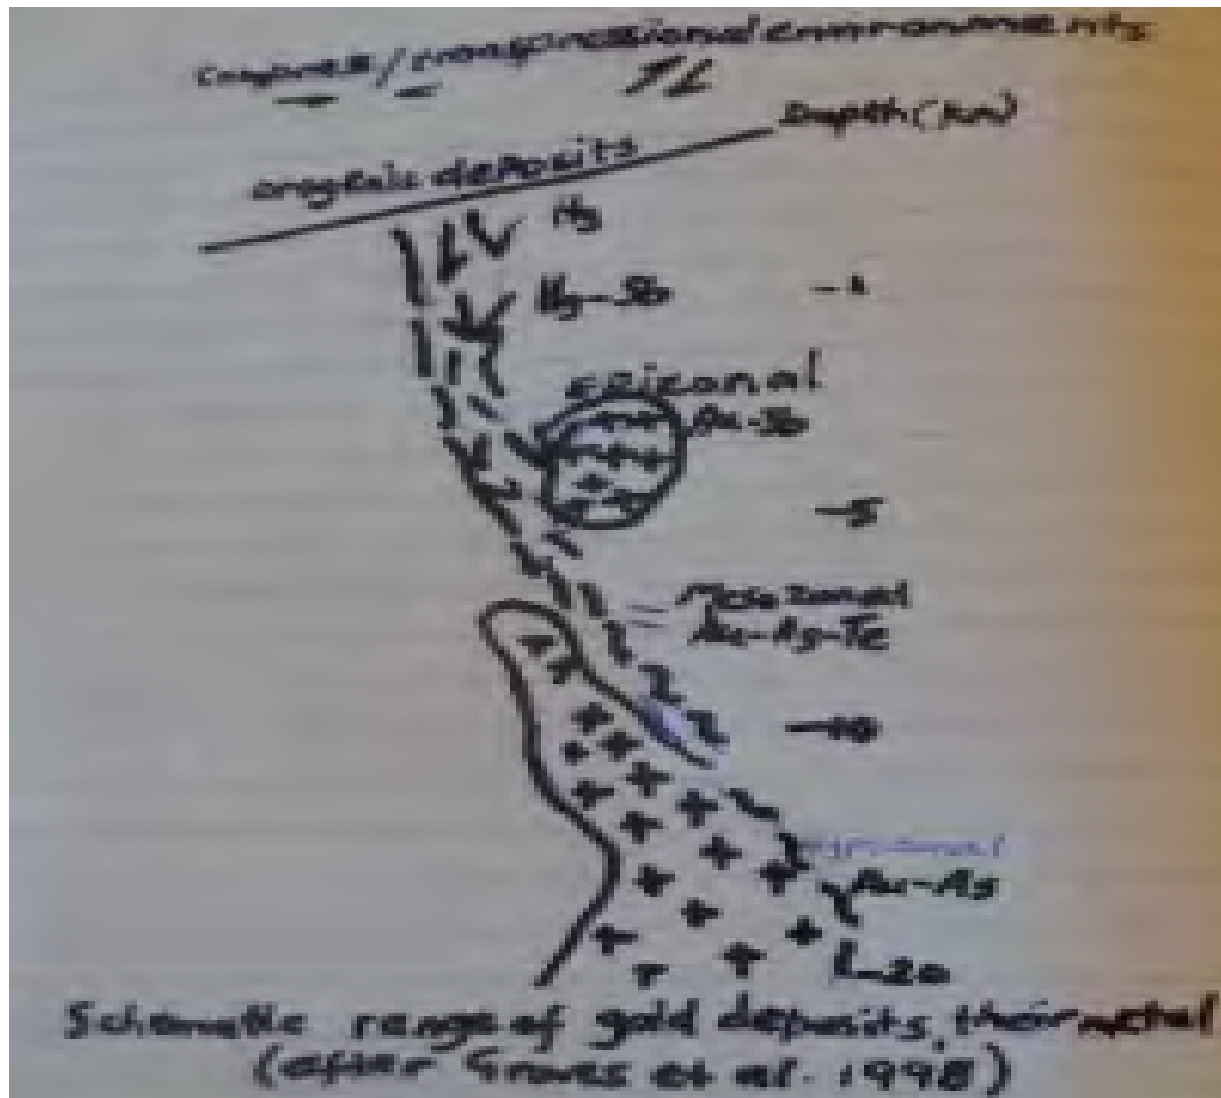 transpressional environments
Depth (Km)
orogenic deposits
Hg
Hg-Sb
-1
Epizonal
Au-Sb
-5
Mesozonal
Au-As-Te
-10
Au-As
-20
Schematic range of gold deposits, their metal
(after Groves et al. 1998)